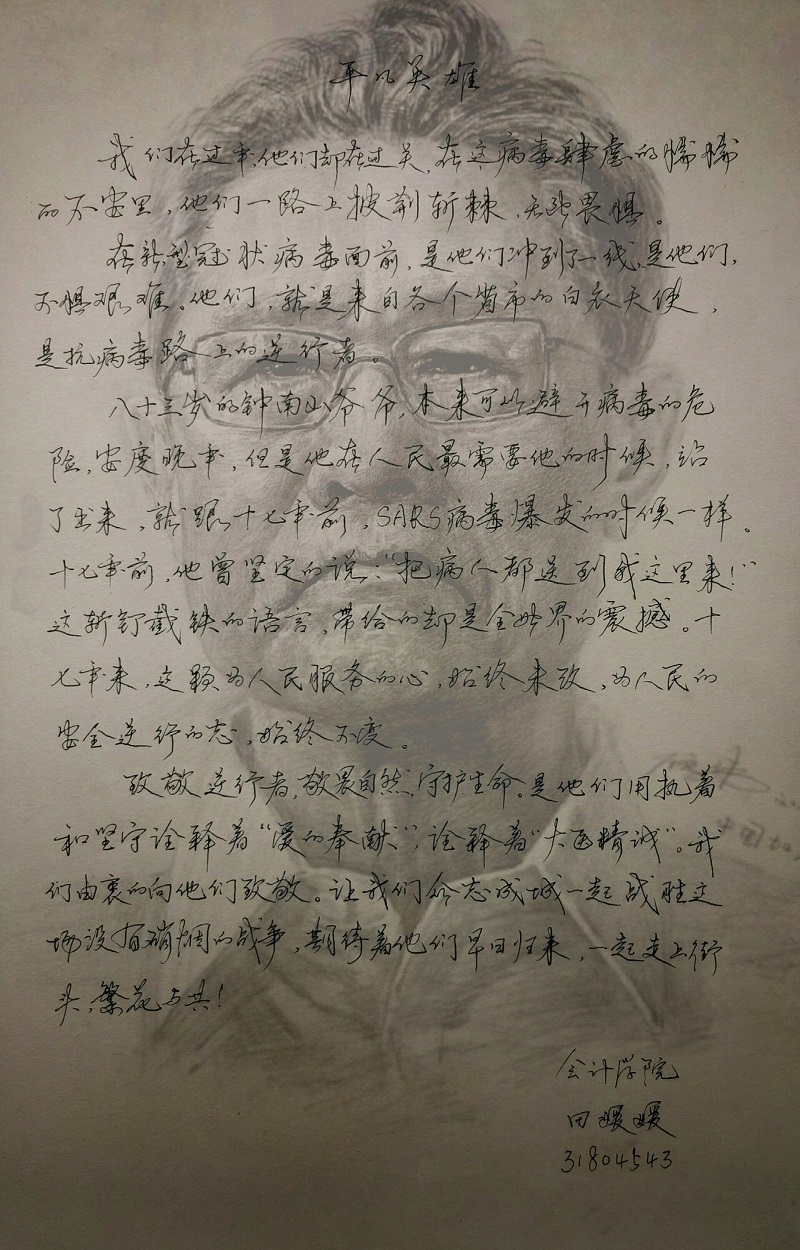 平凡英雄
我们在过年,他们却在过关,在这病毒肆虐的惴惴
的不安里,他们一路上披荆斩棘,无所畏惧。
在新型冠状病毒面前,是他们冲到了一线,是他们,
不惧艰难。他们,就是来自各个省市的白衣天使,
是抗病毒路上的逆行者。
八十三岁的钟南山爷爷,本来可以避开病毒的危
险,安度晚年,但是他在人民最需要他的时候,站
了出来,就跟十七年前,SARS病毒爆发的时候一样。
十七年前,他曾坚定的说:“把病人都送到我这里来!”
这斩钉截铁的语言,带给的却是全世界的震撼。十
七年来,这颗为人民服务的心,始终未改,为人民的
安全逆行的志,始终不变。
致敬逆行者,敬畏自然,守护生命。是他们用执着
和坚守诠释着“爱的奉献”,诠释着“大医精诚”。我
们由衷的向他们致敬。让我们众志成城一起战胜这
场没有硝烟的战争,期待着他们早日归来,一起走上街
头,繁花与共!
会计学院
田媛媛
31804543